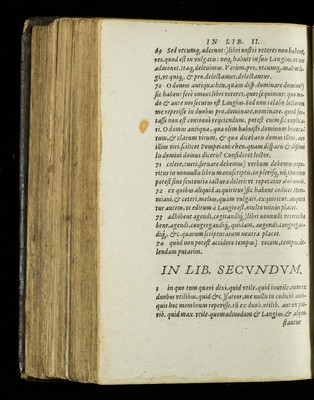 IN LIB. II.
69 Sed vtcumq, aderunt:) libri nostri veteres non habent,
res, quod est in vulgatu: uoq, habuit in suo Langius, vt nos
admonet. Itaq, deleuimus. Verùm, pro, vtcumq,
gi, vt quiq, & pro delectamur, delectantur.
70 O domus antiqua heu, quàm disp. dominare domino!)
sic habent ferè omnes libri veteres, quos sequimur: quo mo-
do & ante nos secutus est Langius. Sed non celabo lectorem
me reperisse in duobus pro, dominare, nominare. quod for-
tasse non est continuò reiiciendum. potest enim sic explica-
ri. O domus antiqua, qua olim habuisti dominum honora-
tum, & clarum virum, & qua dicebaris domus illius, aut
illius viri. scilicet Pompeiani: eheu, quàm dispari & dissimi-
lis domini domus diceris? Consideret lector.
71 colere, tueri, seruare debemus) verbum debemus, repe-
ritur in nonnullis libris manuscriptis: in plerisq, nō. Omitti
potest sine sententiæ iactura
72 ex quibus aliquid acquiritur) sic habent codices Mem-
miani, & ceteri, melius, quàm vulgati. exquiritur.
tur autem, vt editum à Langio est, multo minùs placet.
73 adhibent agendi, cogitandiq́) libri nonnulli veteres ha
bent, agendi, congregandiq́, quidam, augendi, congregan-
diq́, &c. quarum scripturarum neutra placet.
74 quòd non potest accidere tempus) vocem, tempus, de-
lendam putarim.
IN LIB. SECVNDVM.
1 in quo tum quæri dixi, quid vtile, quid inutile, tum ex
duobus vtilibus, quid &c.) fateor, me nullis in codicib. anti-
quis hoc membrum reperisse, tū ex duob. vtilib. aut ex plu-
rib. quid max. vtile. quemadmodum & Langius, & aliqui
stantur